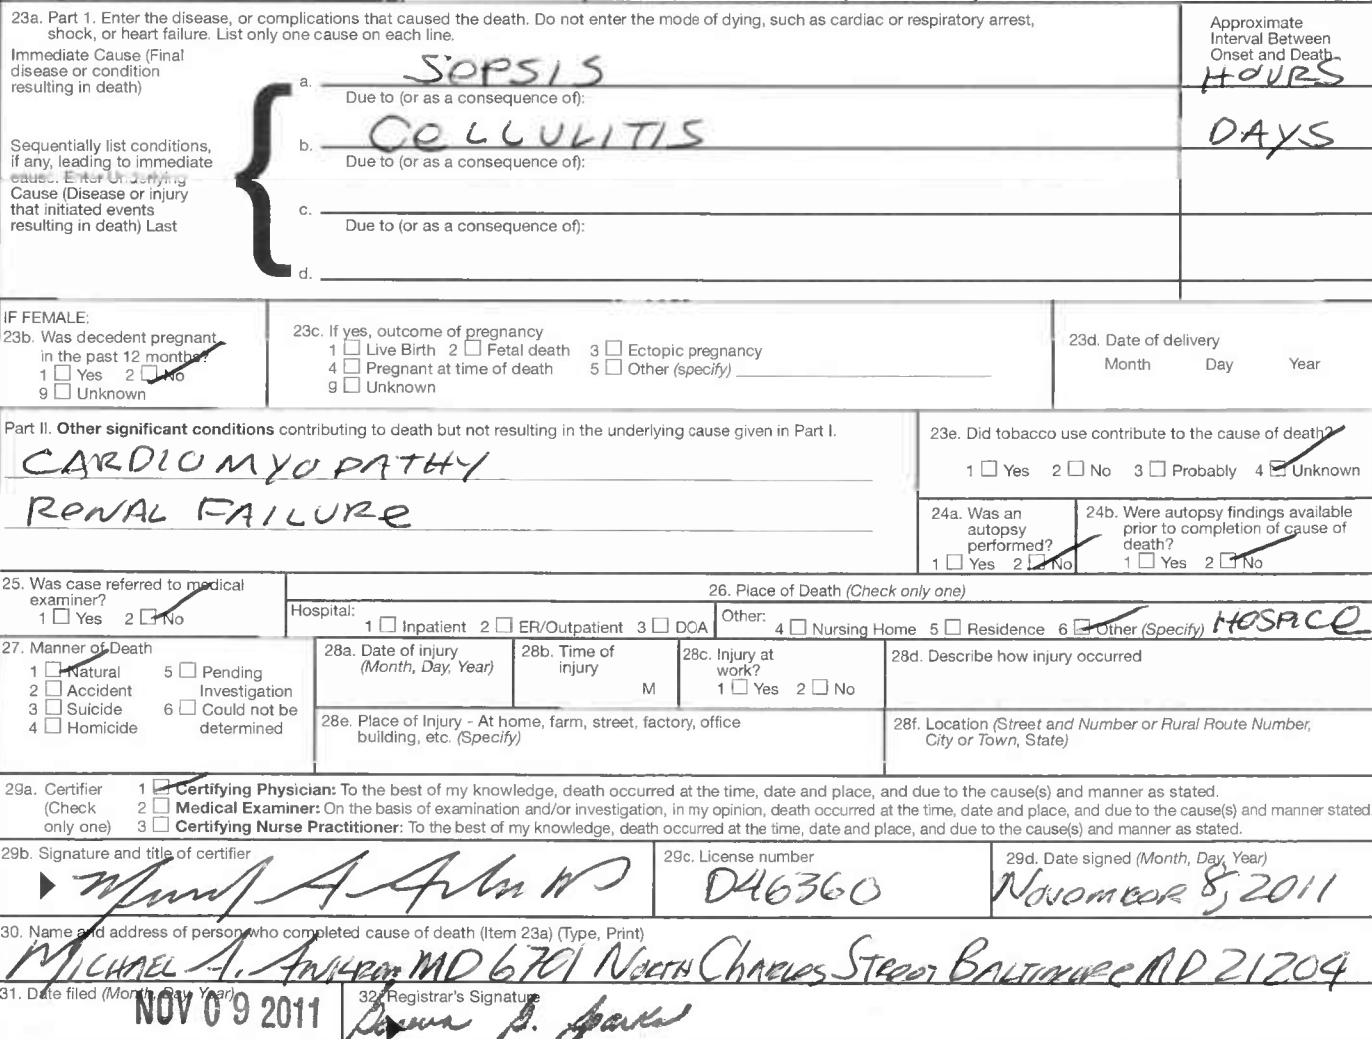 23a. Part 1. Enter the disease, or complications that caused the death. Do not enter the mode of dying, such as cardiac or respiratory arrest,
shock, or heart failure. List only one cause on each line.
Approximate
Interval Between
Onset and Death
Immediate Cause (Final
disease or condition
resulting in death)
a. SEPSIS HOURS
Due to (or as a consequence of):
Sequentially list conditions,
if any, leading to immediate
cause. Enter Underlying
Cause (Disease or injury
that initiated events
resulting in death) Last
b. CELLULITIS DAYS
Due to (or as a consequence of):
c.
Due to (or as a consequence of):
d.
IF FEMALE:
23b. Was decedent pregnant
in the past 12 months?
1 Yes 2 No
9 Unknown
23c. If yes, outcome of pregnancy
1 Live Birth 2 Fetal death 3 Ectopic pregnancy
4 Pregnant at time of death 5 Other (specify)
9 Unknown
23d. Date of delivery
Month Day Year
Part II. Other significant conditions contributing to death but not resulting in the underlying cause given in Part I.
CARDIOMYOPATHY
RENAL FAILURE
23e. Did tobacco use contribute to the cause of death?
1 Yes 2 No 3 Probably 4 Unknown
24a. Was an
autopsy
performed?
1 Yes 2 No
24b. Were autopsy findings available
prior to completion of cause of
death?
1 Yes 2 No
25. Was case referred to medical
examiner?
1 Yes 2 No
26. Place of Death (Check only one)
Hospital:
1 Inpatient 2 ER/Outpatient 3 DOA
Other:
4 Nursing Home 5 Residence 6 Other (Specify) HOSPICE
27. Manner of Death
1 Natural
2 Accident
3 Suicide
4 Homicide
5 Pending
Investigation
6 Could not be
determined
28a. Date of injury
(Month, Day, Year)
28b. Time of
injury
M
28c. Injury at
work?
1 Yes 2 No
28d. Describe how injury occurred
28e. Place of Injury - At home, farm, street, factory, office
building, etc. (Specify)
28f. Location (Street and Number or Rural Route Number,
City or Town, State)
29a. Certifier
(Check
only one)
1 Certifying Physician: To the best of my knowledge, death occurred at the time, date and place, and due to the cause(s) and manner as stated.
2 Medical Examiner: On the basis of examination and/or investigation, in my opinion, death occurred at the time, date and place, and due to the cause(s) and manner stated
3 Certifying Nurse Practitioner: To the best of my knowledge, death occurred at the time, date and place, and due to the cause(s) and manner as stated.
29b. Signature and title of certifier
29c. License number
D46360
29d. Date signed (Month, Day, Year)
NOVEMBER 8, 2011
30. Name and address of person who completed cause of death (Item 23a) (Type, Print)
MICHAEL A. MD 6701 NORTH CHARLES STREET BALTIMORE MD 21204
31. Date filed (Month, Day, Year)
NOV 09 2011
32. Registrar's Signature